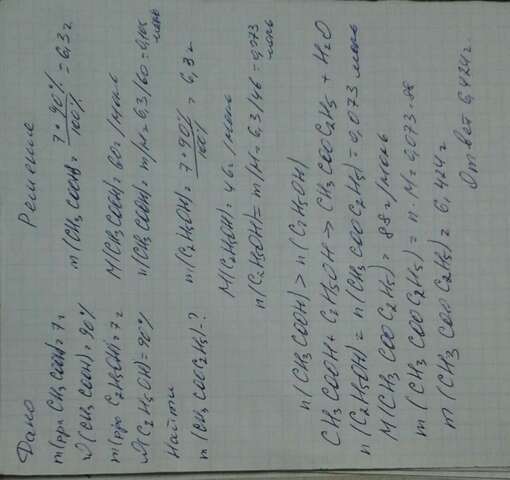 Дано
m(р-ра CH3COOH)=7г
ω(CH3COOH)=90%
m(р-ра C2H5OH)=7г
ω(C2H5OH)=90%
Найти
m(CH3COOC2H5)-?
Решение
m(CH3COOH)= 7*90%/100% =6,3г
M(CH3COOH)=60г/моль
n(CH3COOH)=m/M=6,3/60=0,105 моль
m(C2H5OH)= 7*90%/100% = 6,3г
M(C2H5OH)=46г/моль
n(C2H5OH)=m/M=6,3/46=0,073 моль
n(CH3COOH)>n(C2H5OH)
CH3COOH+C2H5OH→CH3COOC2H5+H2O
n(C2H5OH)=n(CH3COOC2H5)=0,073 моль
M(CH3COOC2H5)=88г/моль
m(CH3COOC2H5)=n·M=0,073·88
m(CH3COOC2H5)=6,424г
Ответ 6,424г.